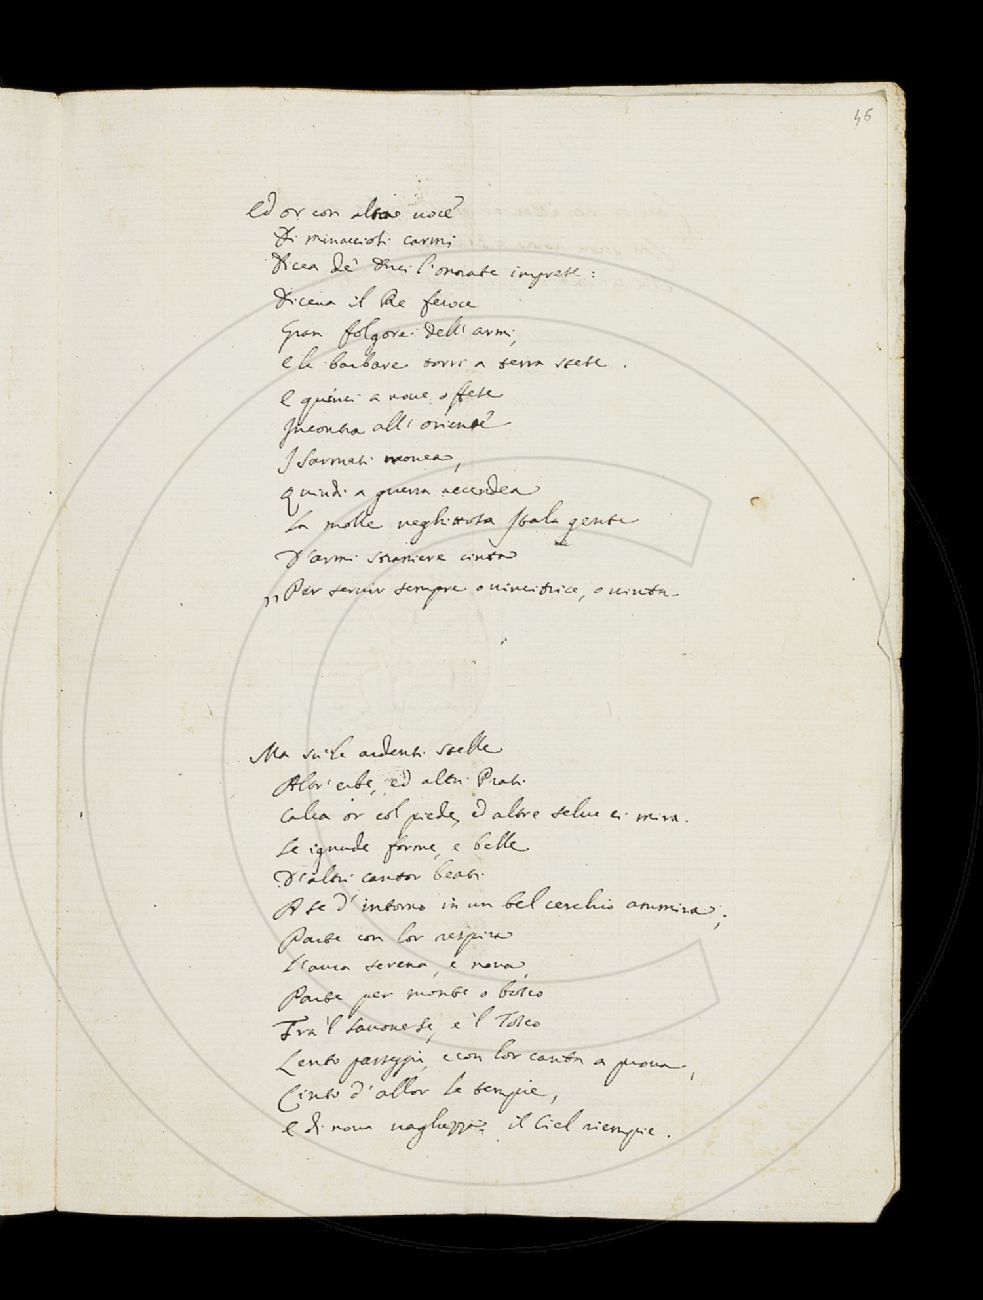 46
Ed or con altra uoce
Di minacciosi carmi
Dicea de' Duci l'onorate imprese:
Diceua il Re feroce
Gran folgore dell'armi,
e le barbare torri a terra stese.
e quinci a noue offese
Incontra all'oriente
I Sarmati mouea,
quindi a guerra accendea
La molle neghittosa Itala gente
D'armi straniere cinta
,, Per seruir sempre o uincitrice, o uinta.
Ma su le ardenti stelle
Altr'erbe, ed altri Prati
Calca or col piede, ed altre selue ei mira.
Le ignude forme, e belle
D'altri cantor beati
A se d'intorno in un bel cerchio ammira;
Parte con lor respira
L'aura serena, e noua,
Parte per monte o bosco
Fra'l Sauonese, e'l Tosco
Lento passeggia, e con lor canta a proua,
Cinto d'allor le tempie,
e di noua uaghezza il Ciel riempie.